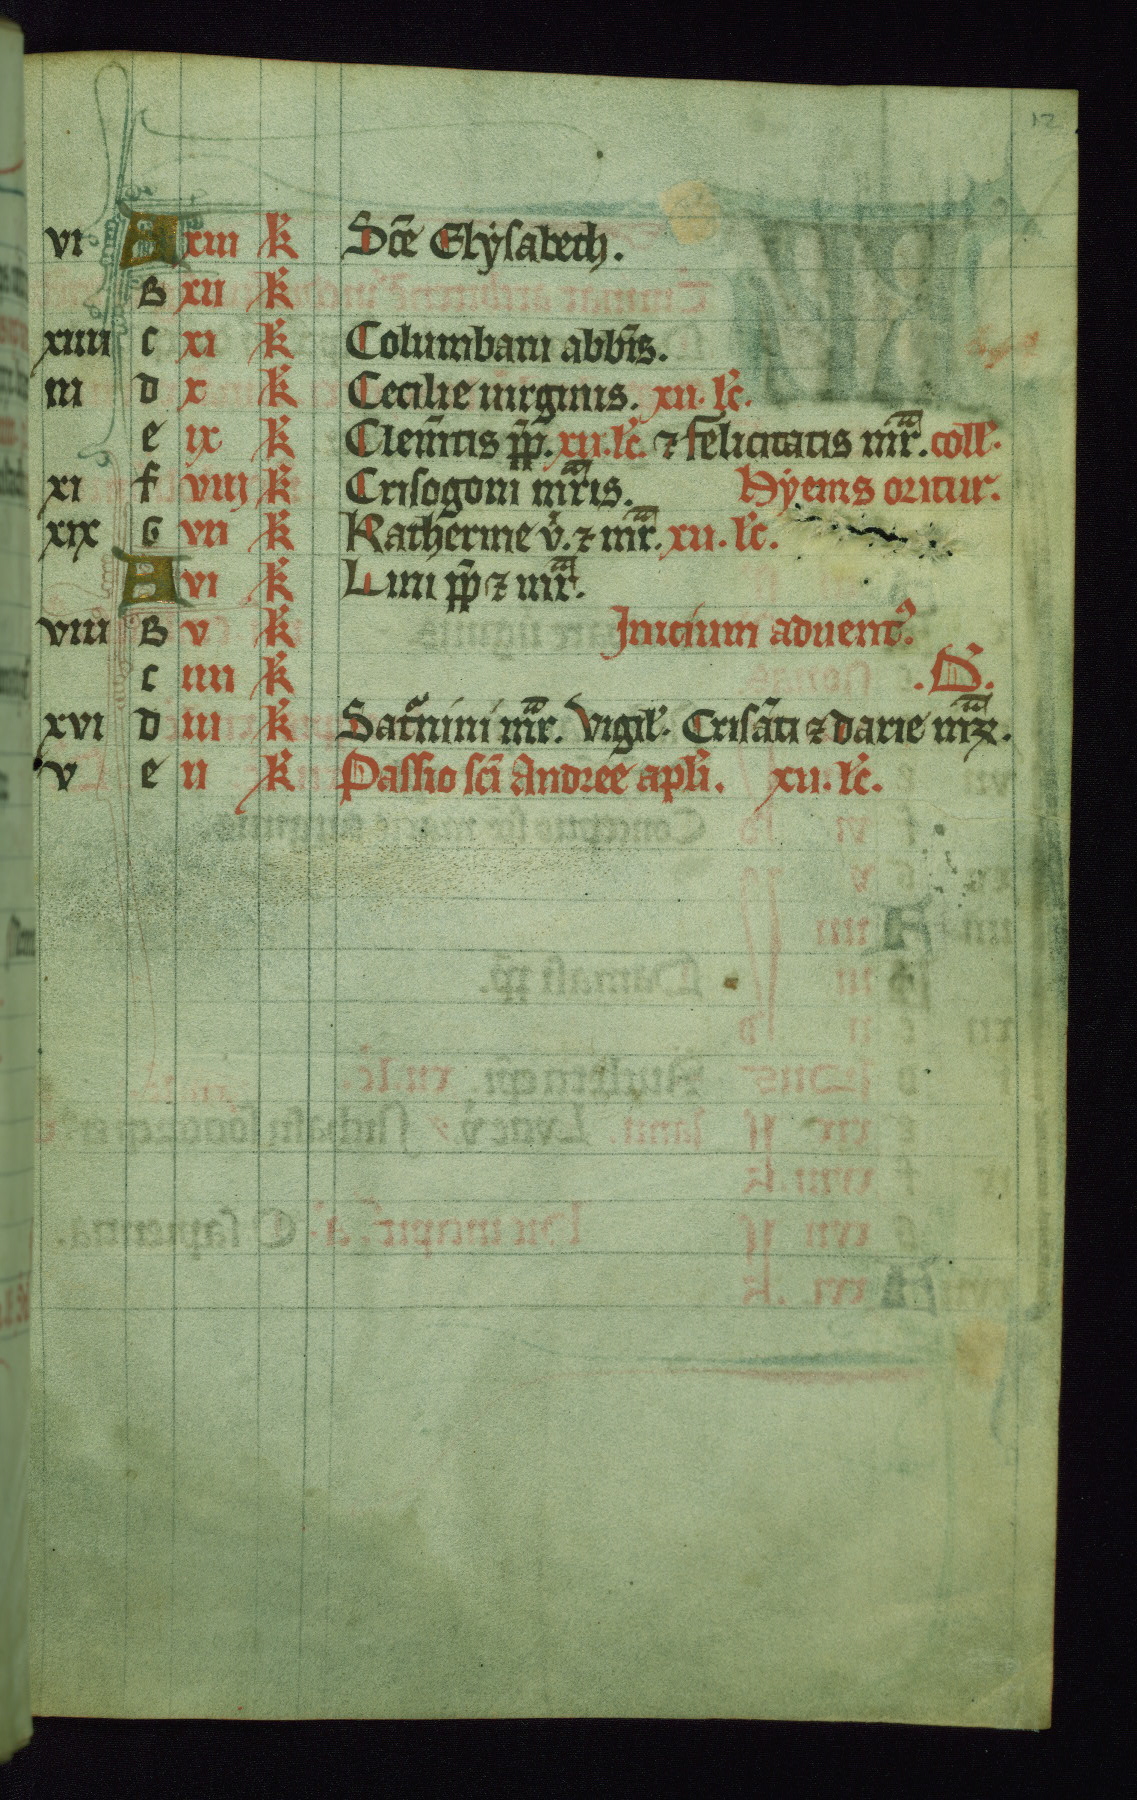 12
vi A xiii k Sc̄e Elẏsabeth.
B xii k
xiiii c xi k Columbani abbīs.
iii d x k Cecilie uirginis. xii. lc̄.
e ix k Clem̄tis pp̄. xii. lc̄. ⁊ felicitatis mr̄. coll'.
xi f viij k Crisogoni mr̄is. Hẏems oritur.
xix G vii k Katherine v̄. ⁊ mr̄. xii. lc̄.
A vi k Lini pp̄ ⁊ mr̄.
viii B v k Inicium aduent᾿.
c iiii k . D̄.
xvi d iii k Sat̄nini mr̄. Vigil'. Crisāti ⁊ Darie mr̄ꝝ.
v e ii k Passio sc̄i Andree apl̄i. xii. lc̄.